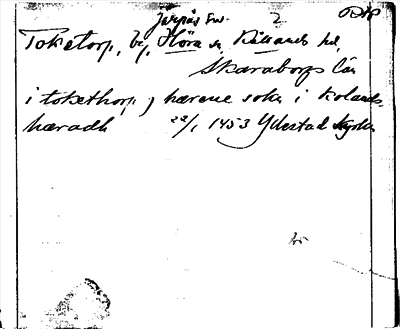 Järpås sn. 2
Toketorp, by, Höra sn, Kållands hd,
Skaraborgs län
i tokethorp j hærene sokn i Kolands
hæradh 22/1 1453 Ydestad kyrka